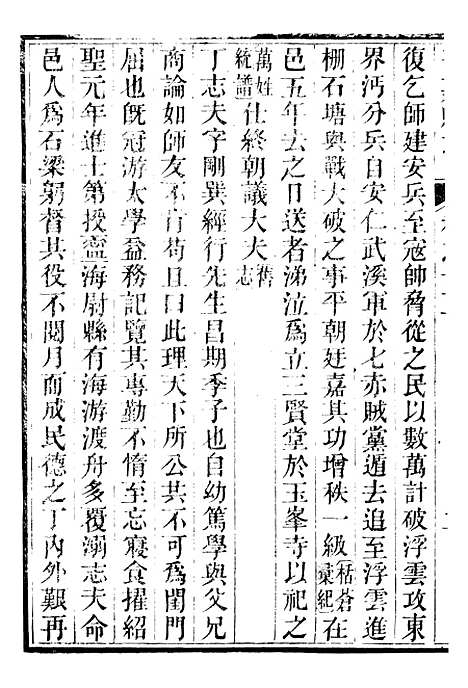 復乞師建安兵至寇帥脅從之民以數萬計破浮雲攻東
界沔分兵自安仁武溪軍於七赤賊黨遁去追至浮雲進
棚石塘與戰大破之事平朝廷嘉其功增秩一級括蒼彙紀在
邑五年去之日送者涕泣爲立三賢堂於玉峯寺以祀之
萬姓統譜仕終朝議大夫舊志
丁志夫字剛巽經行先生昌期季子也自幼篤學與父兄
商論如師友不肯苟且曰此理天下所公共不可爲閨門
屈也旣冠游太學益務記覽其專勤不惰至忘寢食擢紹
聖元年進士第授寧海尉縣有海游渡舟多覆溺志夫命
邑人爲石梁躬督其役不閱月而成民德之丁內外艱再